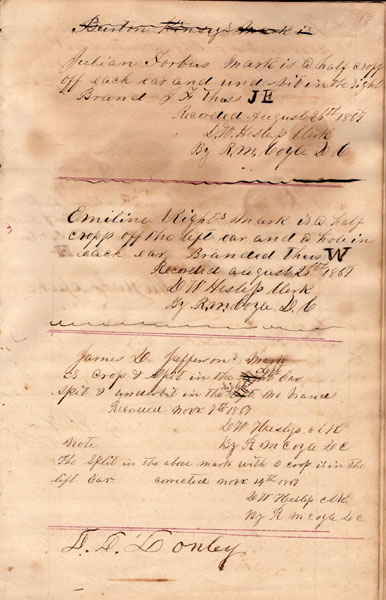 Burton Kinsey's Mark is
Julian Forbus Mark is a half cropp
off each ear and und bit in the right
Brand J F thus JE
Recorded August 26th 1867
D. W. Heslip Clerk
By R. M. Cozle D. C
Emiline Kights Mark is a half
cropp off the left ear and a hole in
each ear Branded thus W
Recorded august 26th 1867
D W Heslip Clerk
By R. M. Cozle D. C
James D. Jefferson's Mark
is Crop & Split in the Ear
Split & underbit in the no brand
Recorded Nov 7th 1867
D W Heslip Clk
Note By R M Cozle D C
The Split in the above mark with a crop is in the
left Ear corrected Nov 14th 1867
D W Heslip Clk
By R M Cozle D C
Donley